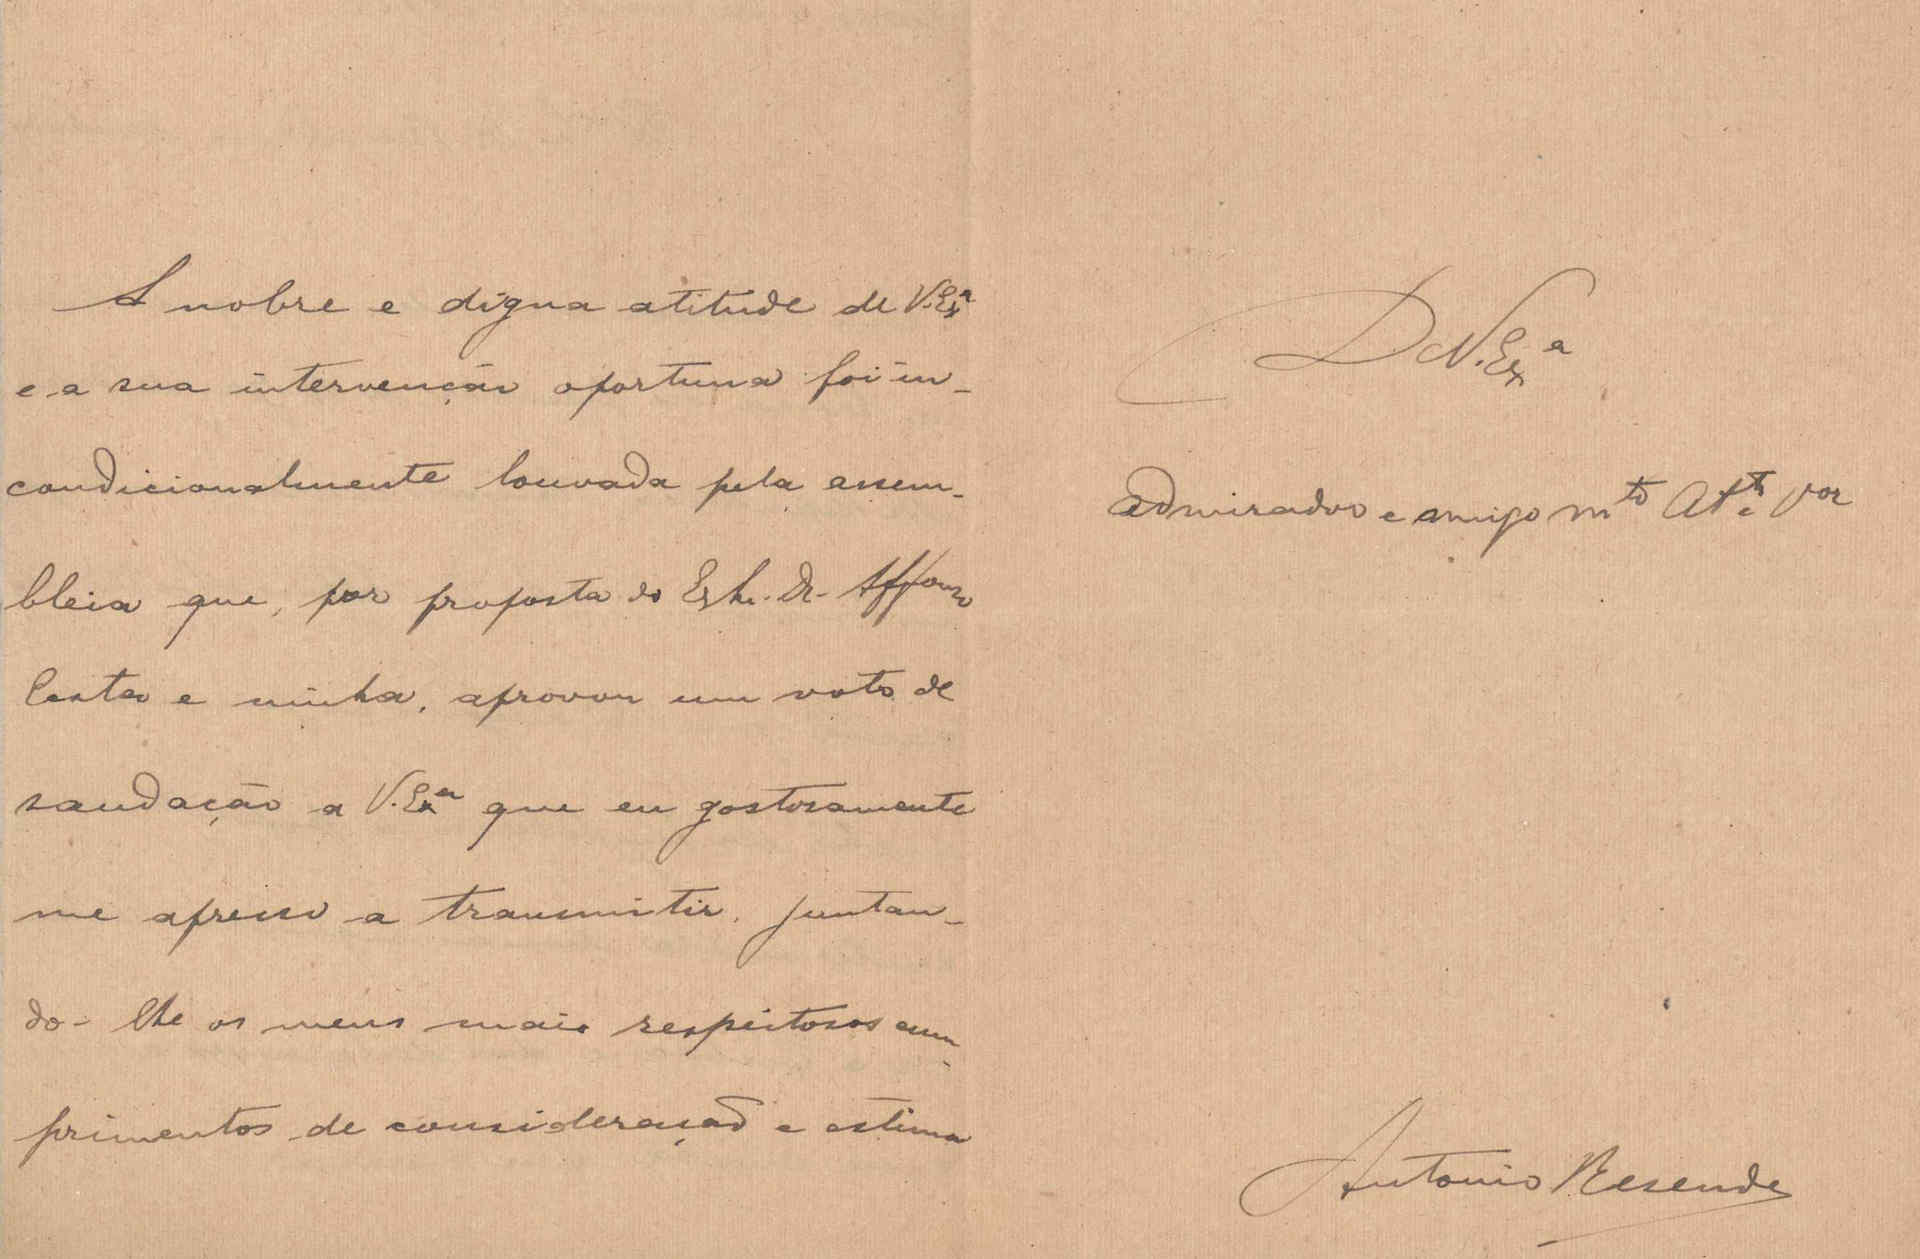 A nobre e digna atitude de V. Exª
e a sua intervenção oportuna foi in-
condicionalmente louvada pela assem-
bleia que, por proposta do Exmo. Dr. Affonso
Costa e minha, aprovou um voto de
saudação a V. Exª que eu gostosamente
me apresso a transmitir, juntan-
do-lhe os meus mais respeitosos cum-
primentos de consideração e estima
D V. Exª
admirador e amigo mto Atto Vor
Antonio Resende